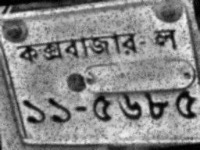 কক্সবাজার-ল
১১-৫৬৮৫